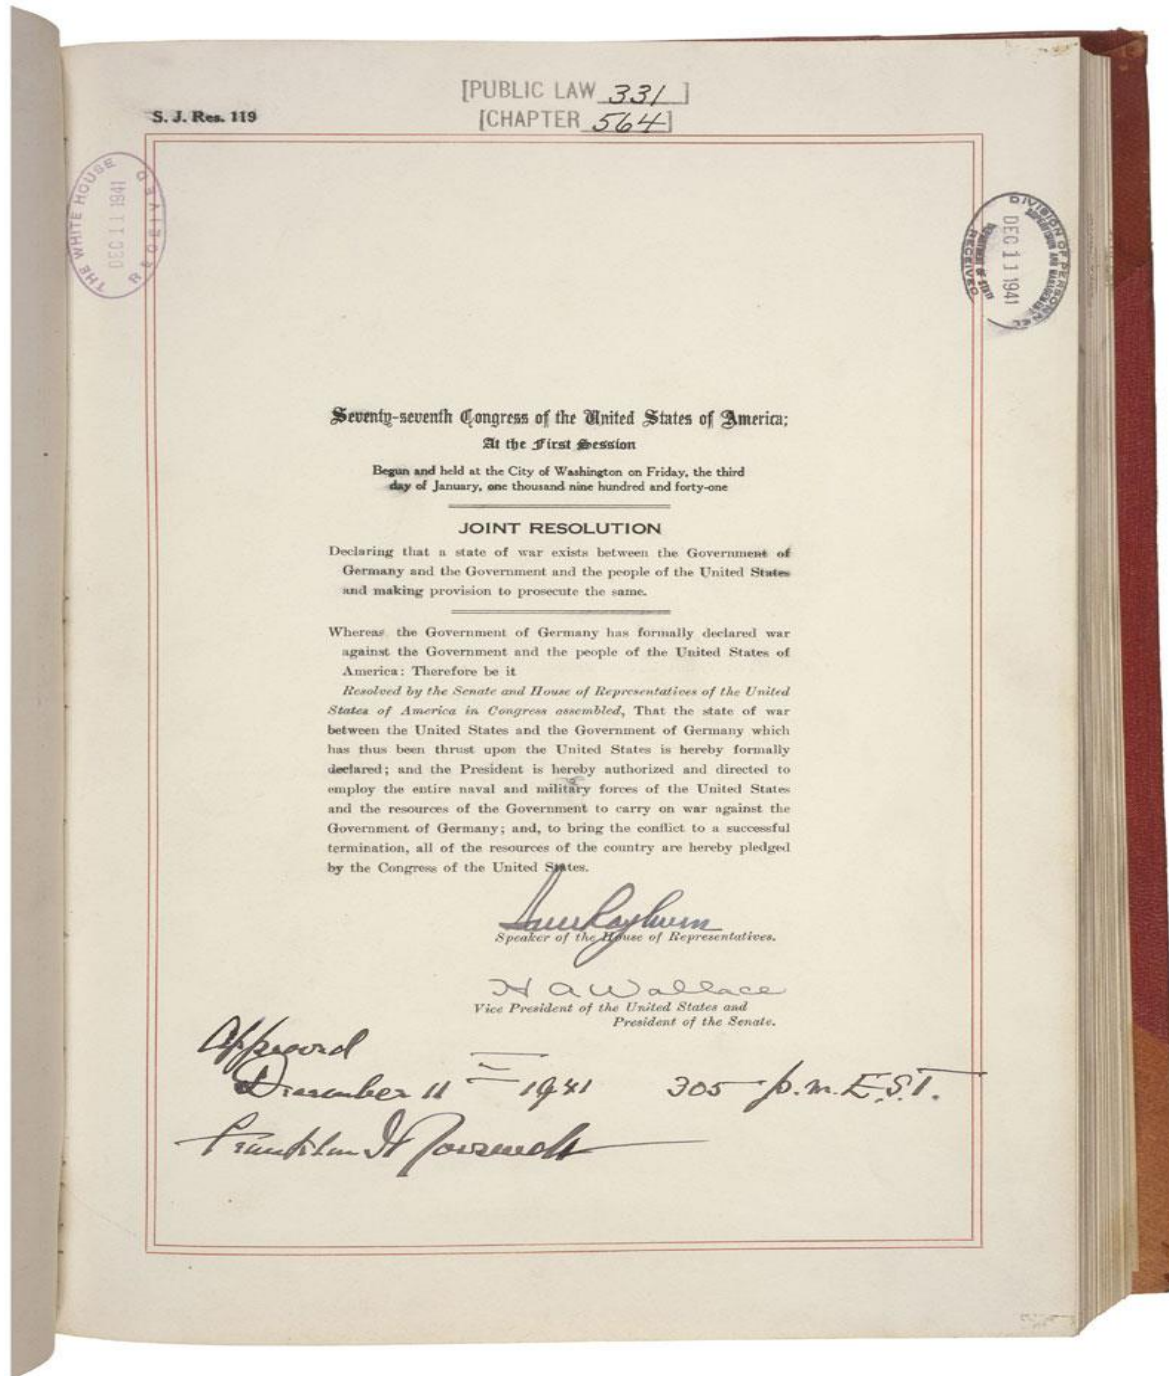 [PUBLIC LAW 331]
[CHAPTER 564]
S. J. Res. 119
THE WHITE HOUSE
DEC 11 1941
RECEIVED
DIVISION OF PERSONNEL
SUPERVISION AND MANAGEMENT
DEC 11 1941
DEPARTMENT OF STATE
RECEIVED
Seventy-seventh Congress of the United States of America;
At the First Session
Begun and held at the City of Washington on Friday, the third
day of January, one thousand nine hundred and forty-one
JOINT RESOLUTION
Declaring that a state of war exists between the Government of
Germany and the Government and the people of the United States
and making provision to prosecute the same.
Whereas the Government of Germany has formally declared war
against the Government and the people of the United States of
America: Therefore be it
Resolved by the Senate and House of Representatives of the United
States of America in Congress assembled, That the state of war
between the United States and the Government of Germany which
has thus been thrust upon the United States is hereby formally
declared; and the President is hereby authorized and directed to
employ the entire naval and military forces of the United States
and the resources of the Government to carry on war against the
Government of Germany; and, to bring the conflict to a successful
termination, all of the resources of the country are hereby pledged
by the Congress of the United States.
Sam Rayburn
Speaker of the House of Representatives.
H A Wallace
Vice President of the United States and
President of the Senate.
Approved
December 11th 1941 305 p.m. E.S.T.
Franklin D Roosevelt